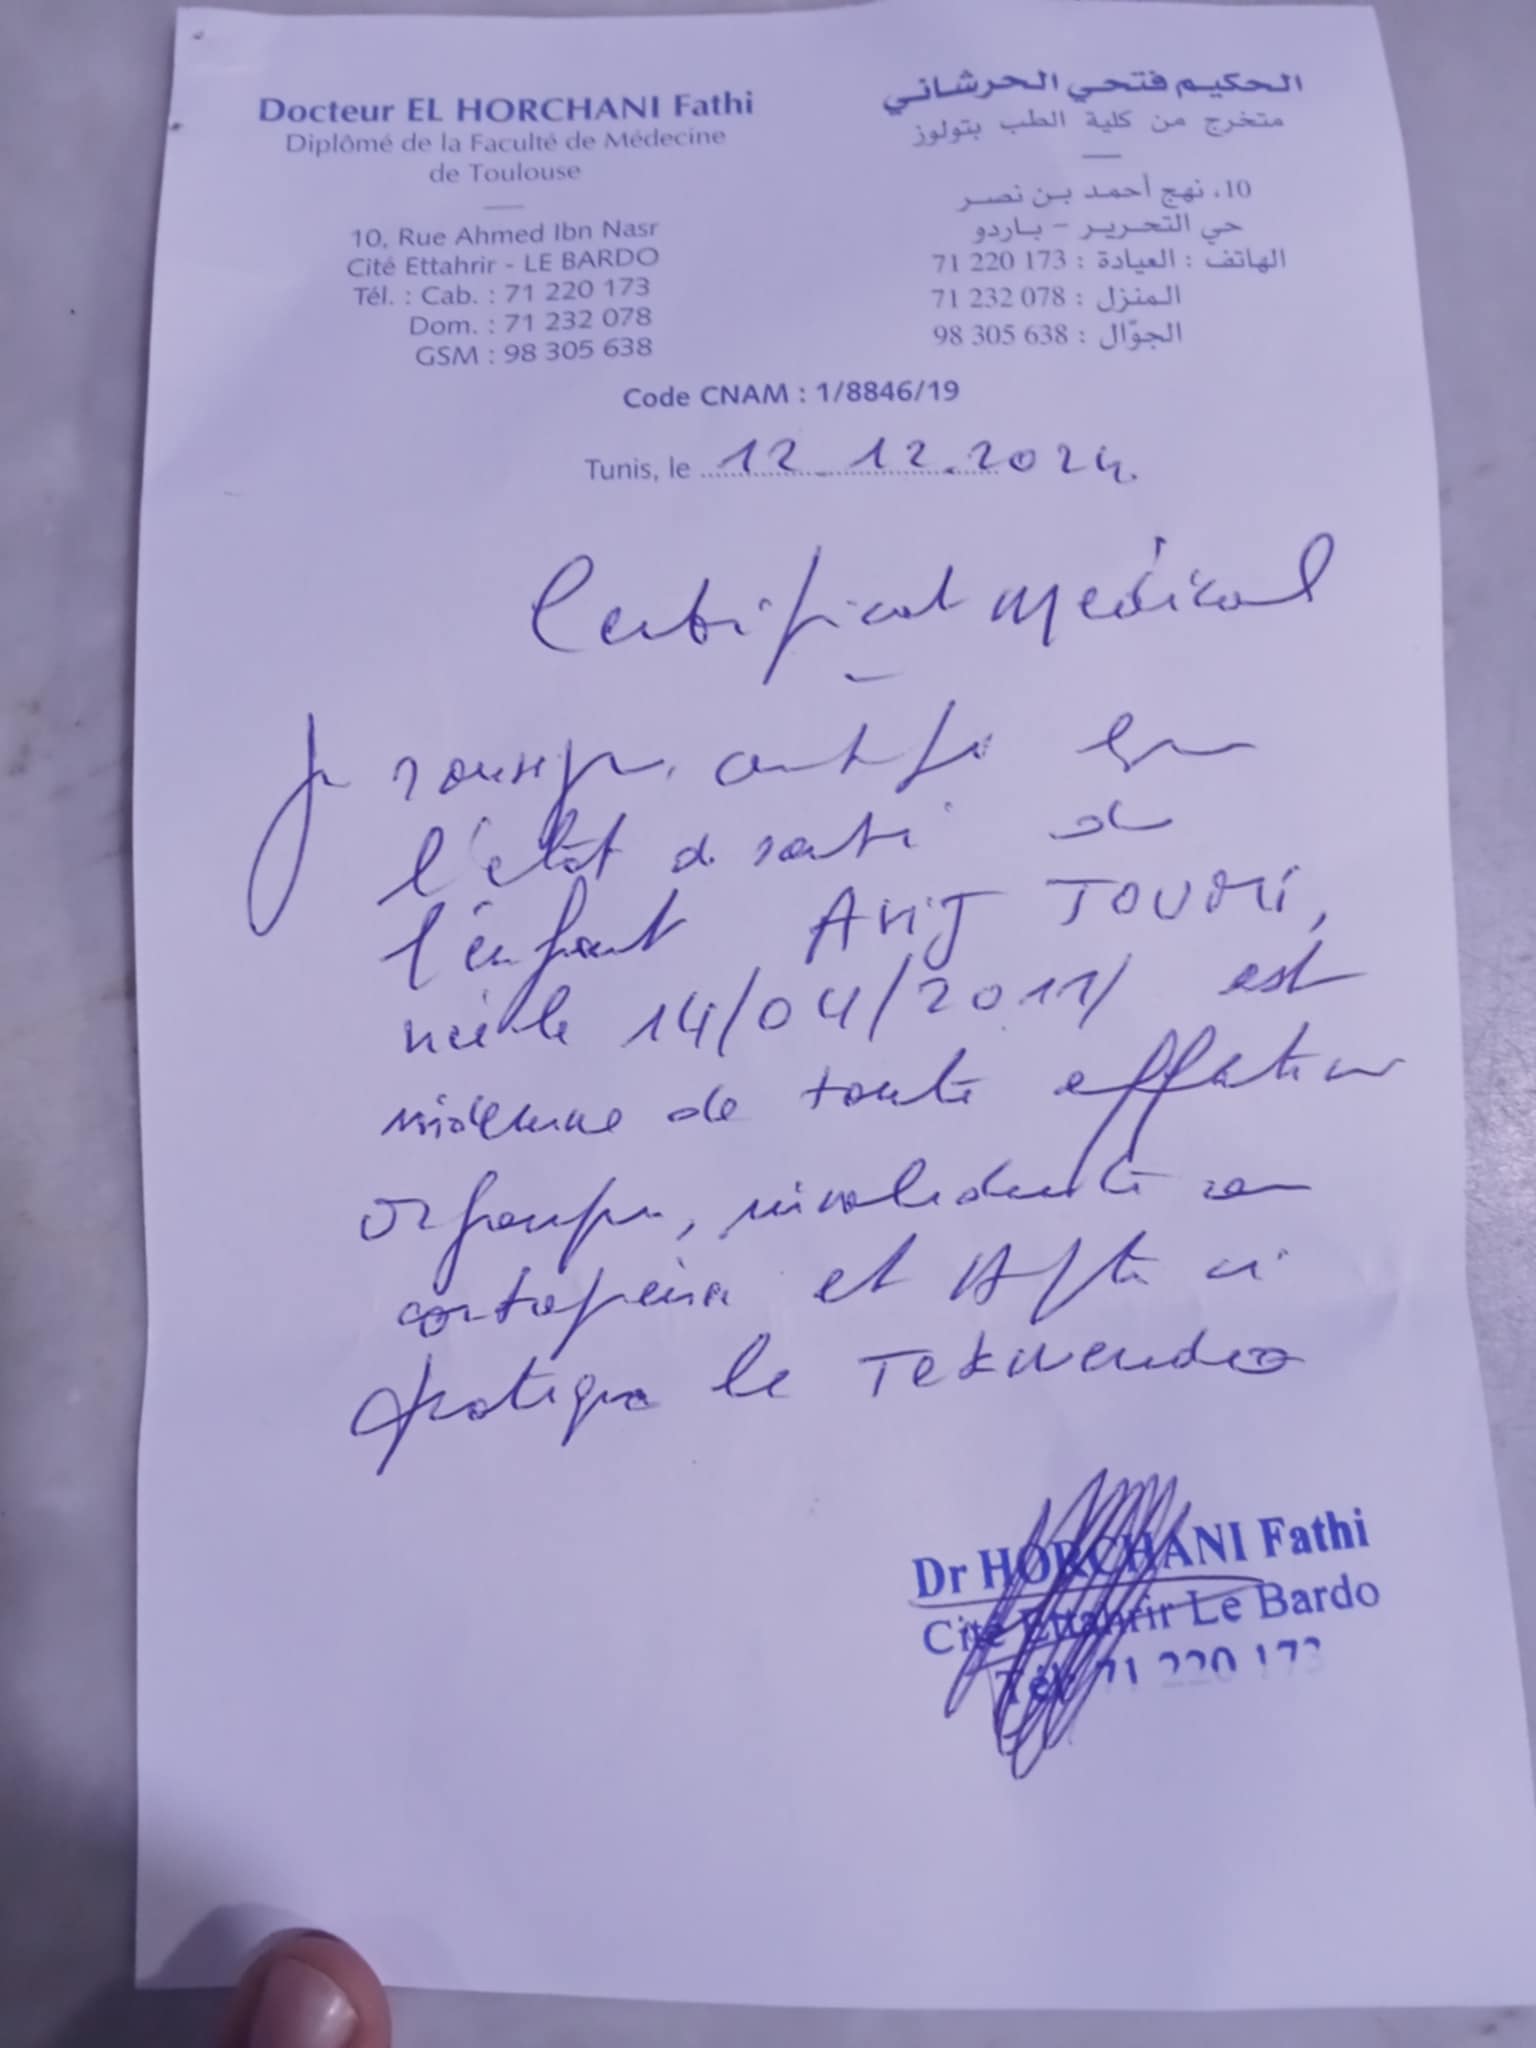 Docteur EL HORCHANI Fathi
Diplômé de la Faculté de Médecine
de Toulouse
10, Rue Ahmed Ibn Nasr
Cité Ettahrir - LE BARDO
Tél. : Cab. : 71 220 173
Dom. : 71 232 078
GSM : 98 305 638
الحكيم فتحي الحرشاني
متخرج من كلية الطب بتولوز
10، نهج أحمد بن نصر
حي التحرير - باردو
الهاتف : العيادة : 173 220 71
المنزل : 078 232 71
الجوّال : 638 305 98
Code CNAM : 1/8846/19
Tunis, le 12.12.2024.
Certificat médical
Je soussigné, certifie que
l'état de santé de
l'enfant TOUMI,
née le 14/04/2011 est
indemne de toute affection
organique, invalidante ou
contagieuse et
pratiquer le Tekwendoo
Dr HORCHANI Fathi
Cité Ettahrir Le Bardo
Tél: 71 220 173